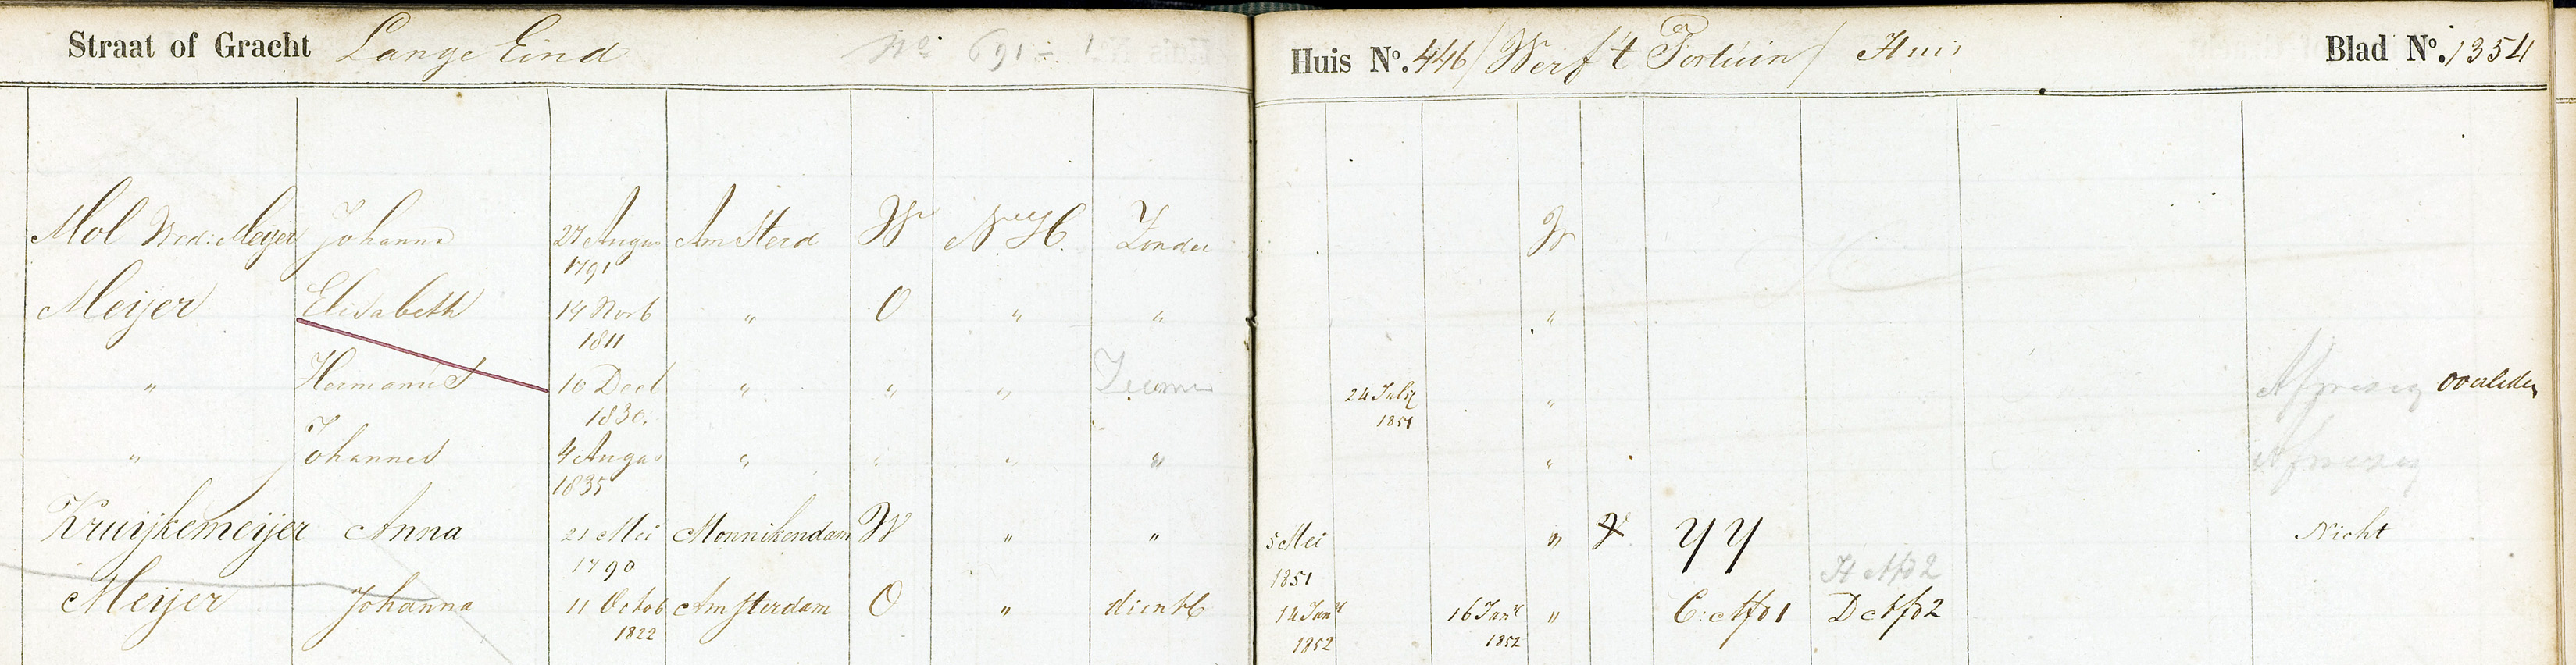 Straat of Gracht Lange Eind No 691
Huis No. 446 / Werf 't Fortuin / Huis Blad No. 1354
Mol Wed: Meijer Johanna 27 Augus Amsterd W N H. Zonder W
1791
Meijer Elisabeth 14 Novb " O " " "
1811
" Hermanus 10 Decb " " " Zeeman 24 Julij " Afwezig overleden
1830. 1851
" Johannes 4 Augus " " " " " Afwezig
1835
Kruijkemeijer Anna 21 Mei Monnikendam W " " 5 Mei " YY Nicht
1790 1851 H Afd 2
Meijer Johanna 11 Octob Amsterdam O " dienstb 14 Janij 16 Janij " C: Afd 1 D Afd 2
1822 1852 1852